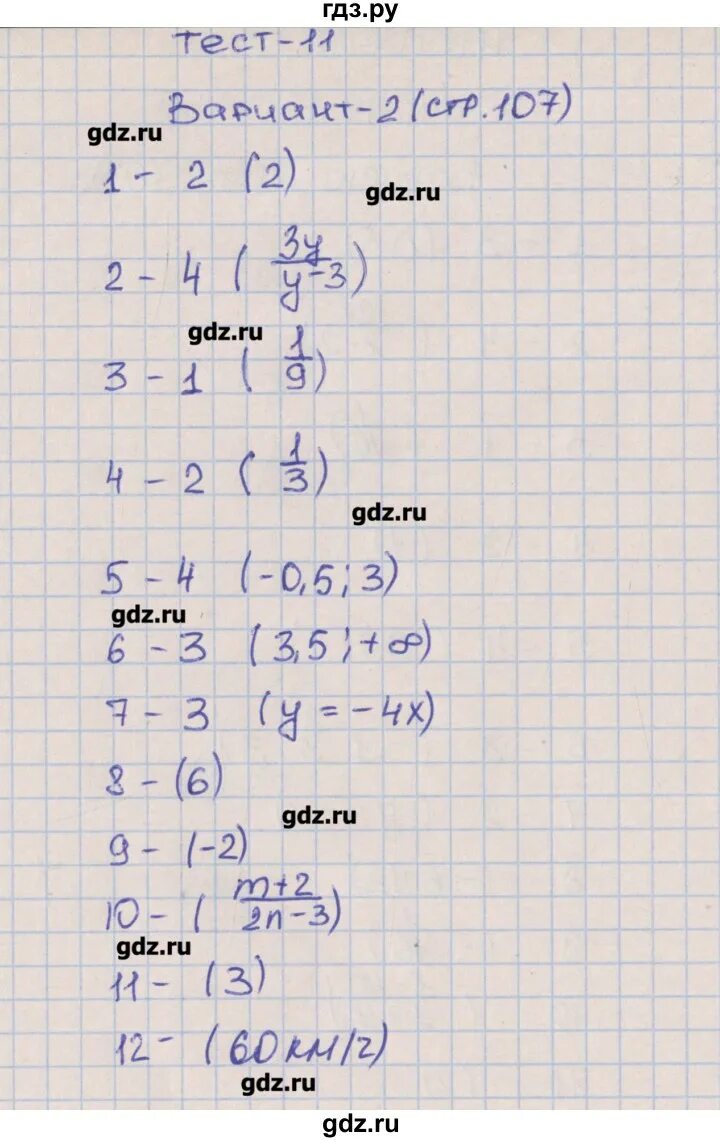 гдз.ру
Тест-11
Вариант-2 (стр.107)
gdz.ru
1 - 2 (2)
gdz.ru
2 - 4 ( 3y/y-3 )
gdz.ru
3 - 1 ( 1/9 )
4 - 2 ( 1/3 )
gdz.ru
5 - 4 (-0,5; 3)
gdz.ru
6 - 3 (3,5; +∞)
7 - 3 (y = -4x)
8 - (6)
gdz.ru
9 - (-2)
10 - ( m+2/2n-3 )
gdz.ru
11 - (3)
12 - (60 км/ч)
gdz.ru
gdz.ru